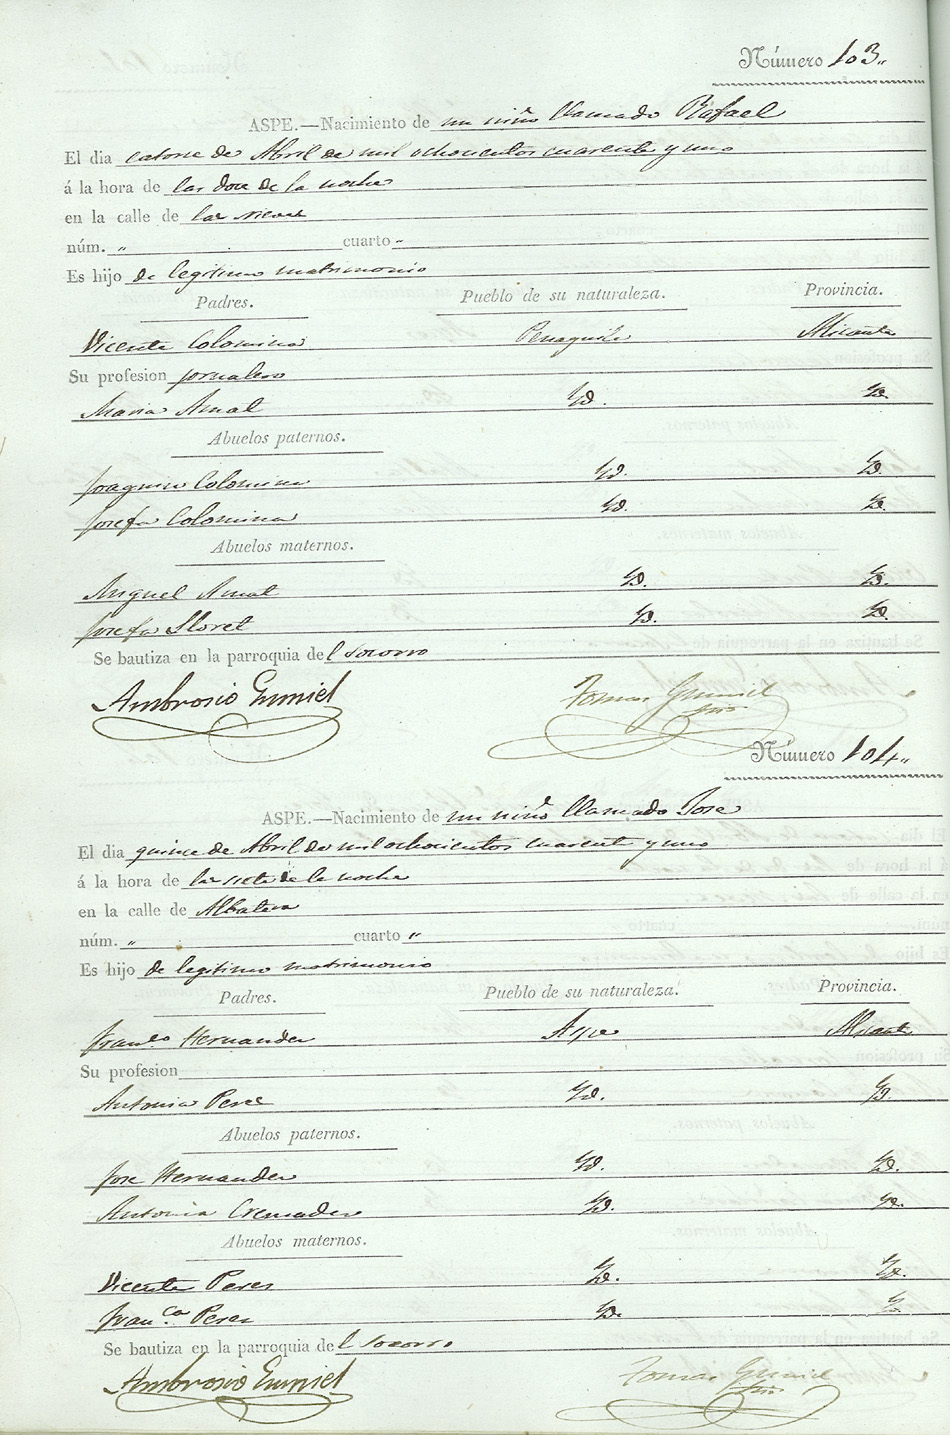 Número 103.,
ASPE.—Nacimiento de un niño llamado Rafael
El dia catorse de Abril de mil ochocientos cuarente y uno
á la hora de las doce de la noche
en la calle de las Nieves
núm. „ cuarto „
Es hijo de legitimo matrimonio
Padres. Pueblo de su naturaleza. Provincia.
Vicente Colomina Penaguila Alicante
Su profesion jornalero
Maria Arnal Yd. Yd.
Abuelos paternos.
Joaquin Colomina Yd. Yd.
Josefa Colomina Yd. Yd.
Abuelos maternos.
Miguel Arnal Yd. Yd.
Josefa Lloret Yd. Yd.
Se bautiza en la parroquia del Socorro
Ambrosio Gumiel Tomas Gumiel
Srio
Número 104.,
ASPE.—Nacimiento de un niño llamado Jose
El dia quince de Abril de mil ochocientos cuarent y uno
á la hora de las siete de la noche
en la calle de Albatera
núm. „ cuarto „
Es hijo de legitimo matrimonio
Padres. Pueblo de su naturaleza. Provincia.
Franco Hernandez Aspe Alicante
Su profesion
Antonia Perez Yd. Yd.
Abuelos paternos.
Jose Hernandez Yd. Yd.
Antonia Cremades Yd. Yd.
Abuelos maternos.
Vicente Peres Yd. Yd.
Franca Peres Yd. Yd.
Se bautiza en la parroquia del Socorro
Ambrosio Gumiel Tomas Gumiel
Srio